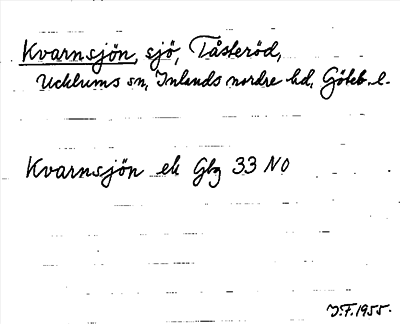 Kvarnsjön, sjö, Tåsteröd,
Ucklums sn, Inlands nordre hd, Göteb. l.
Kvarnsjön ek Gbg 33 NO
J.F. 1955.